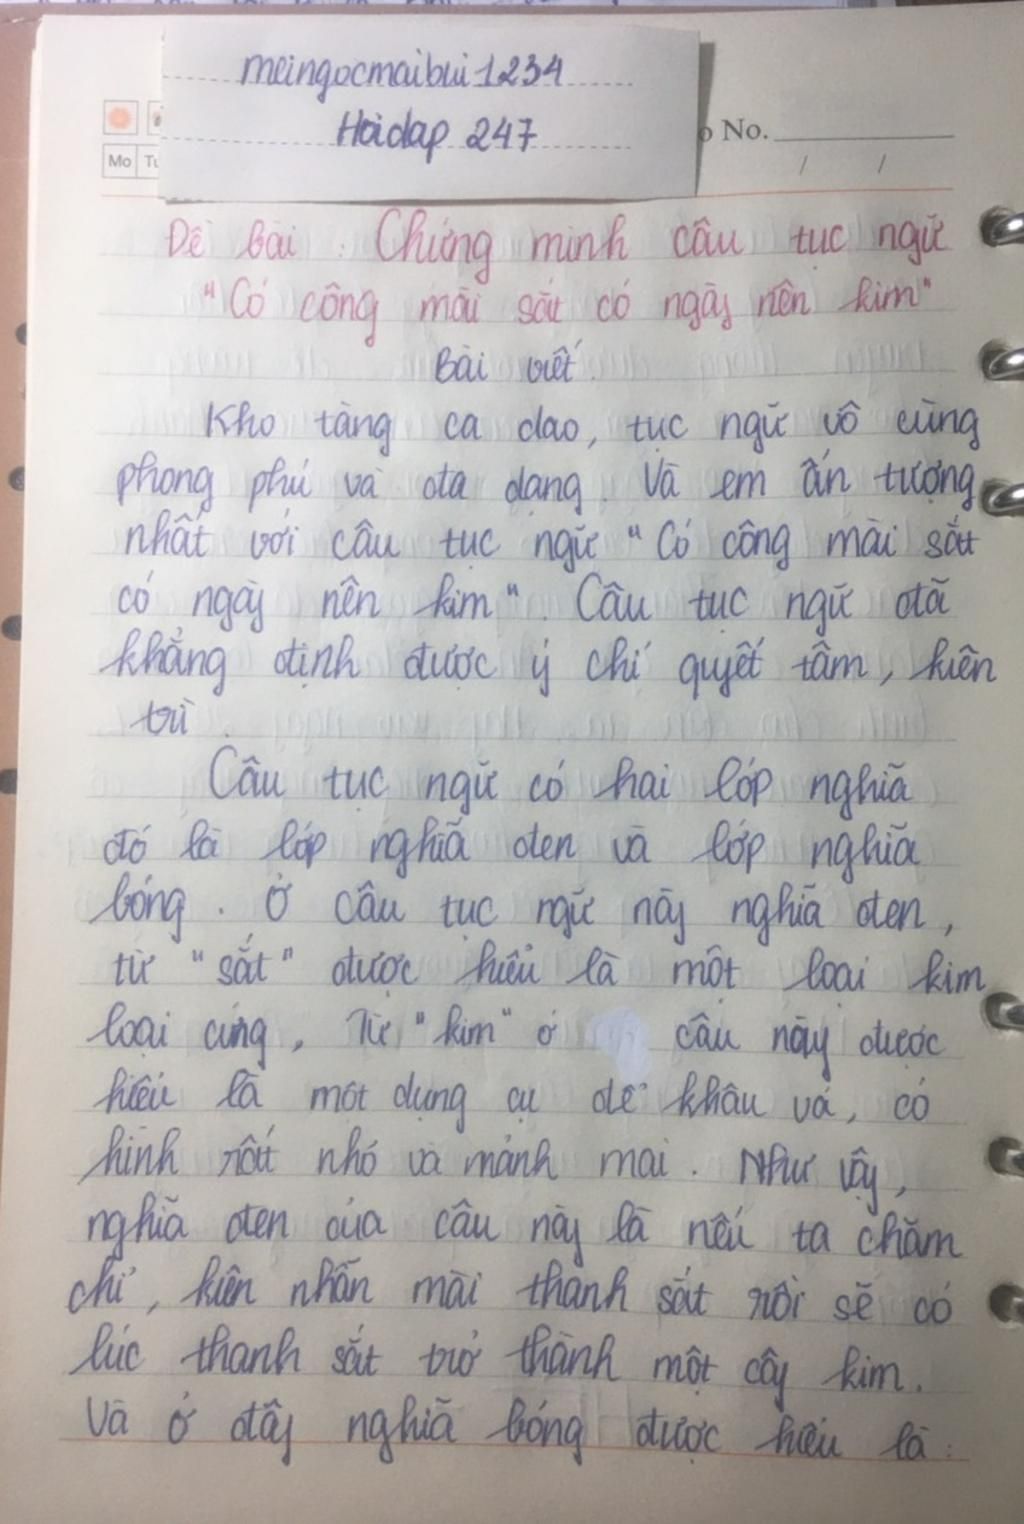 meingocmaibui1234
Hoidap 247
No.
/ /
Mo Tu
Đề bài : Chứng minh câu tục ngữ
"Có công mài sắt có ngày nên kim"
Bài viết
Kho tàng ca dao, tục ngữ vô cùng
phong phú và đa dạng. Và em ấn tượng
nhất với câu tục ngữ "Có công mài sắt
có ngày nên kim". Câu tục ngữ đã
khẳng định được ý chí quyết tâm, kiên
trì.
Câu tục ngữ có hai lớp nghĩa
đó là lớp nghĩa đen và lớp nghĩa
bóng. Ở câu tục ngữ này nghĩa đen,
từ "sắt" được hiểu là một loại kim
loại cứng, Từ "kim" ở câu này được
hiểu là một dụng cụ để khâu vá, có
hình rất nhỏ và mảnh mai. Như vậy,
nghĩa đen của câu này là nếu ta chăm
chỉ, kiên nhẫn mài thanh sắt rồi sẽ có
lúc thanh sắt trở thành một cây kim.
Và ở đây nghĩa bóng được hiểu là: